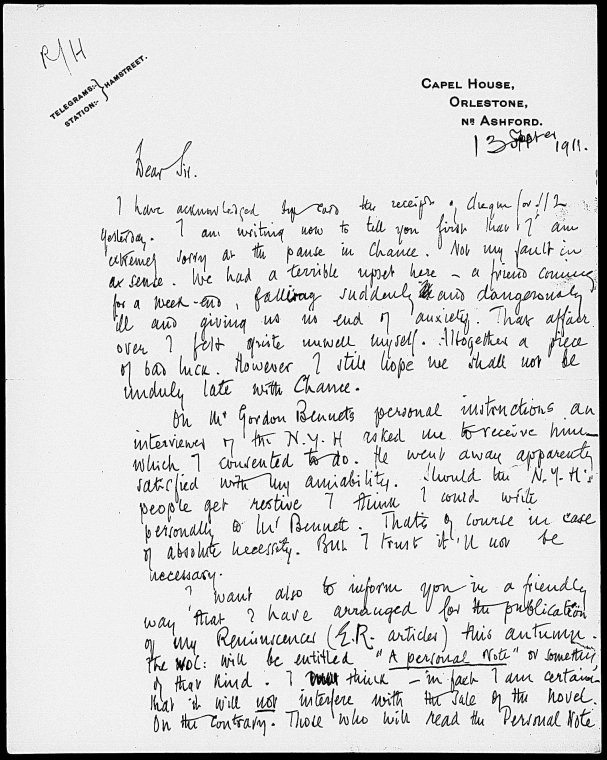 R/H
TELEGRAMS:-
STATION:-
} HAMSTREET.
CAPEL HOUSE,
ORLESTONE,
NR ASHFORD.
13 Septer 1911.
Dear Sir.
I have acknowledged by card the receipt of cheque for £12
yesterday. I am writing now to tell you first that I am
extremely sorry at the pause in Chance. Not my fault in
a sense. We had a terrible upset here – a friend coming
for a week-end, falling suddenly and dangerously
ill and giving us no end of anxiety. That affair
over I felt quite unwell myself. Altogether a piece
of bad luck. However I still hope we shall not be
unduly late with Chance.
On Mr Gordon Bennets personal instructions an
interviewer of the N.Y.H asked me to receive him –
which I consented to do. He went away apparently
satisfied with my amiability. Should the N.Y.H's
people get restive I think I could write
personally to Mr Bennett. That's of course in case
of absolute necessity. But I trust it'll not be
necessary.
I want also to inform you in a friendly
way that I have arranged for the publication
of my Reminiscences (E.R. articles) this autumn.
The vol: will be entitled "A personal Note" or something
of that kind. I think – in fact I am certain
that it will not interfere with the sale of the novel.
On the contrary. Those who will read the Personal Note